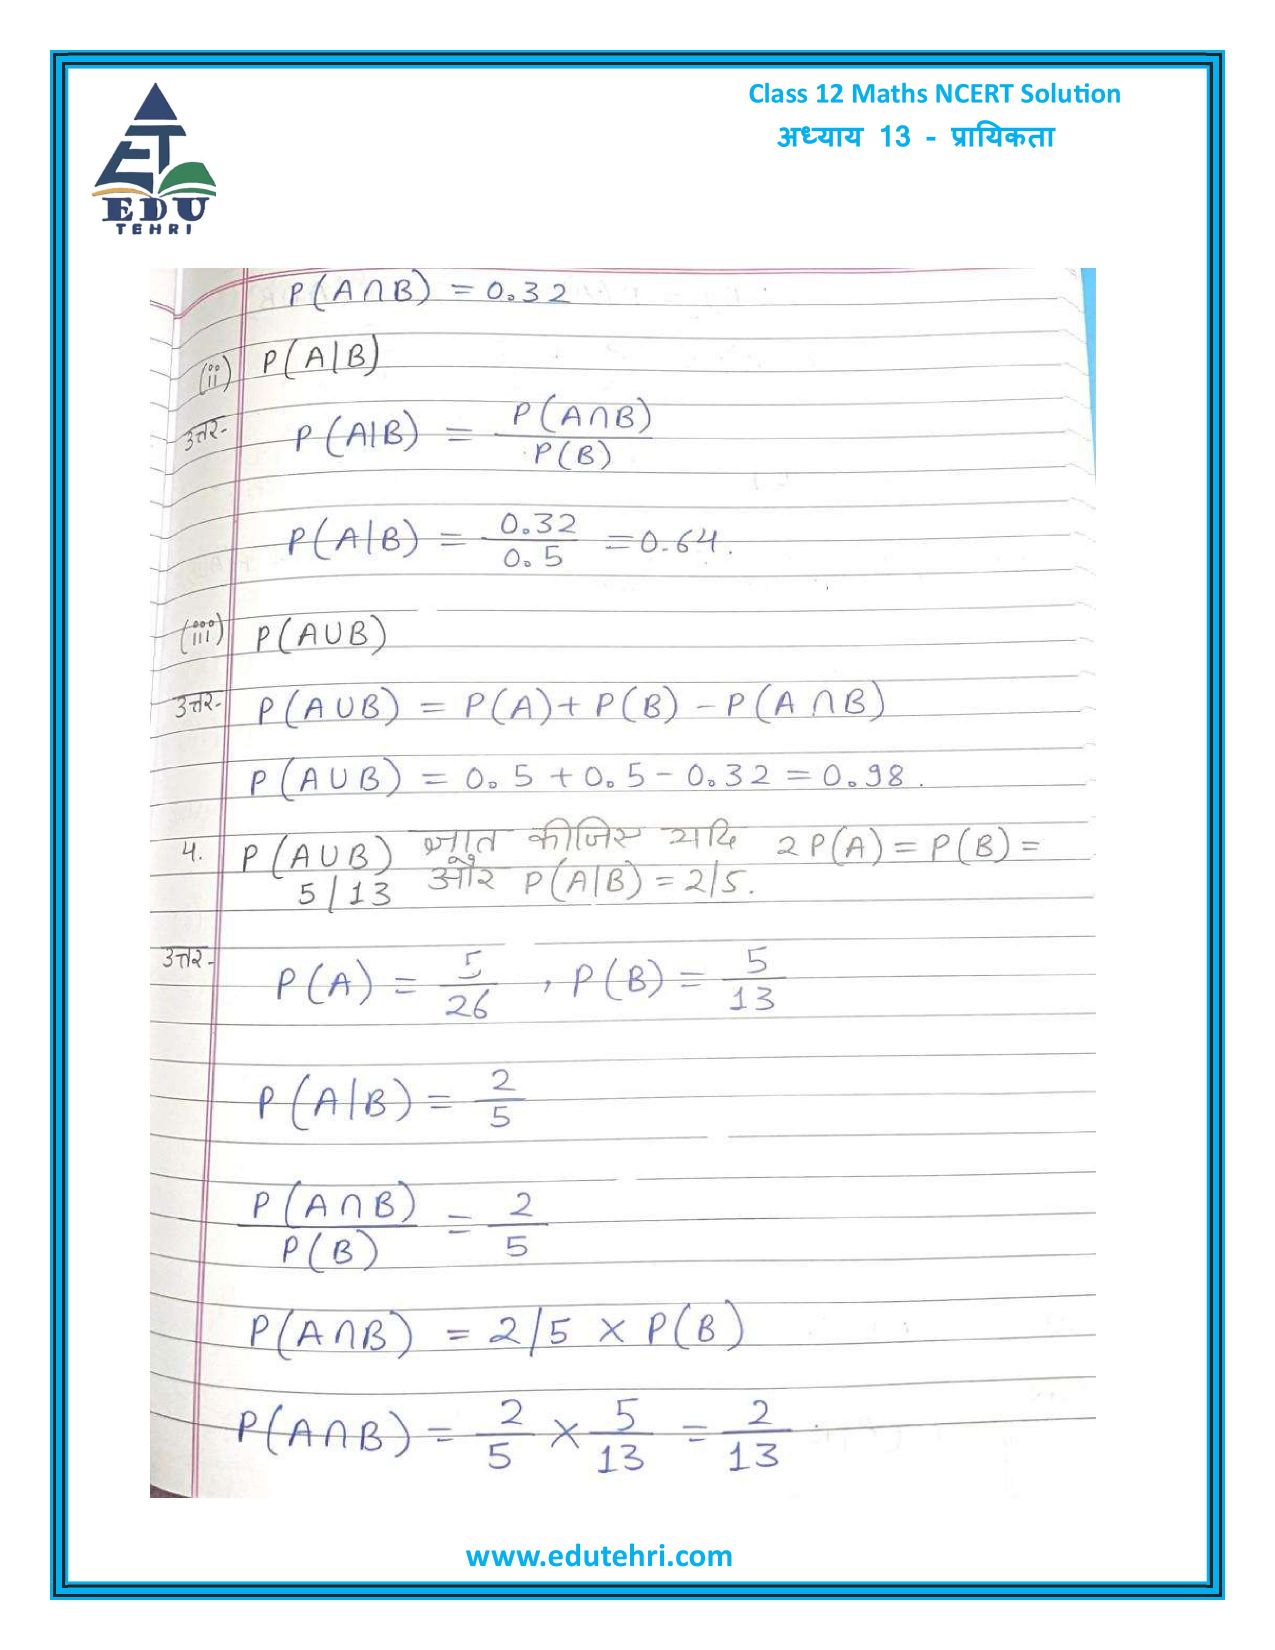 Class 12 Maths NCERT Solution
अध्याय 13 - प्रायिकता
EDU
TEHRI
P(A∩B) = 0.32
(ii) P(A|B)
उत्तर- P(A|B) = P(A∩B) / P(B)
P(A|B) = 0.32 / 0.5 = 0.64.
(iii) P(A∪B)
उत्तर- P(A∪B) = P(A) + P(B) - P(A∩B)
P(A∪B) = 0.5 + 0.5 - 0.32 = 0.98.
4. P(A∪B) ज्ञात कीजिए यदि 2P(A) = P(B) =
5/13 और P(A|B) = 2/5.
उत्तर- P(A) = 5/26, P(B) = 5/13
P(A|B) = 2/5
P(A∩B) / P(B) = 2/5
P(A∩B) = 2/5 × P(B)
P(A∩B) = 2/5 × 5/13 = 2/13.
www.edutehri.com